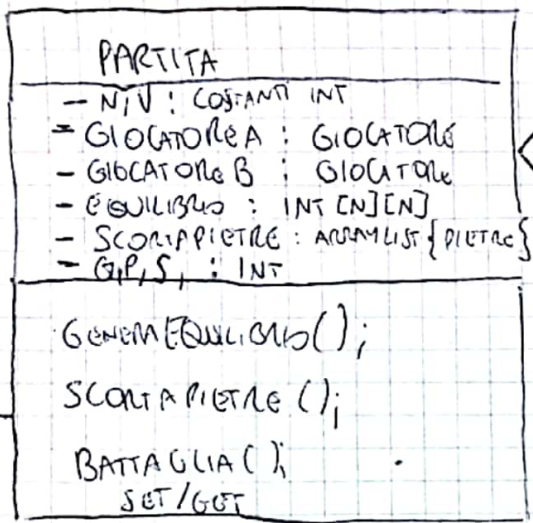 PARTITA
- N, V : COSTANTI INT
- GIOCATORE A : GIOCATORE
- GIOCATORE B : GIOCATORE
- EQUILIBRIO : INT [N][N]
- SCORTAPIETRE : ARRAYLIST {PIETRE}
- G, P, S, : INT
GENERAEQUILIBRIO();
SCORTAPIETRE();
BATTAGLIA();
SET/GET